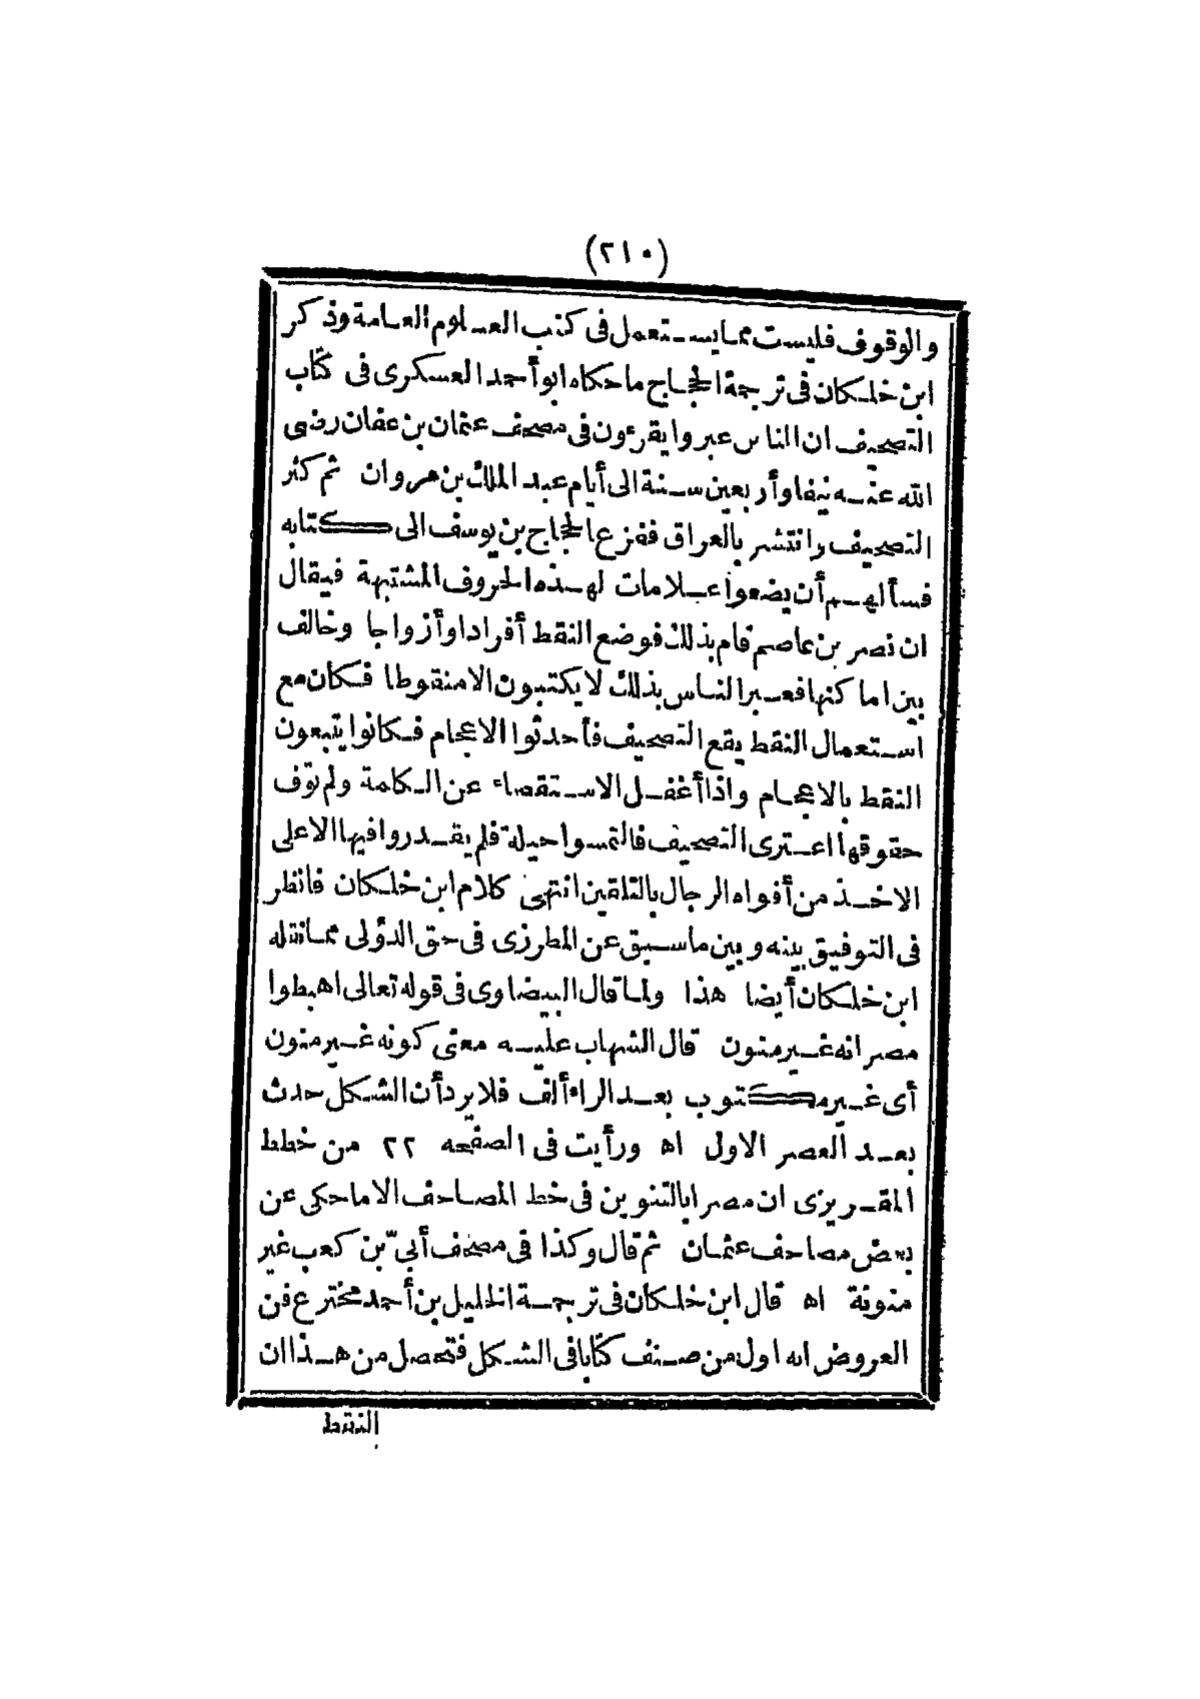 (٢١٠)
والوقوف فليست مما يستعمل فى كتب العلوم العامة وذكر
ابن خلكان فى ترجمة الحجاج ما حكاه ابو أحمد العسكرى فى كتاب
التصحيف ان الناس عبروا يقرءون فى مصحف عثمان بن عفان رضى
الله عنه نيفا وأربعين سنة الى أيام عبد الملك بن مروان ثم كثر
التصحيف وانتشر بالعراق ففزع الحجاج بن يوسف الى كتابه
فسألهم أن يضعوا علامات لهذه الحروف المشتبهة فيقال
ان نصر بن عاصم قام بذلك فوضع النقط أفرادا وأزواجا وخالف
بين اماكنها فعبر الناس بذلك لا يكتبون الا منقوطا فكان مع
استعمال النقط يقع التصحيف فأحدثوا الاعجام فكانوا يتبعون
النقط بالاعجام واذا أغفل الاستقصاء عن الكلمة ولم توف
حقوقها اعترى التصحيف فالتمسوا حيلة فلم يقدروا فيها الا على
الاخذ من أفواه الرجال بالتلقين انتهى كلام ابن خلكان فانظر
فى التوفيق بينه وبين ما سبق عن المطرزى فى حق الدؤلى مما نقله
ابن خلكان أيضا هذا ولما قال البيضاوى فى قوله تعالى اهبطوا
مصر انه غير منون قال الشهاب عليه معنى كونه غير منون
أى غير مكتوب بعد الراء ألف فلا يرد أن الشكل حدث
بعد العصر الاول اه ورأيت فى الصفحه ٢٢ من خطط
المقريزى ان مصرا بالتنوين فى خط المصاحف الا ما حكى عن
بعض مصاحف عثمان ثم قال وكذا فى مصحف أبىّ بن كعب غير
منونة اه قال ابن خلكان فى ترجمة الخليل بن أحمد مخترع فن
العروض انه اول من صنف كتابا فى الشكل فتحصل من هذا ان
النقط